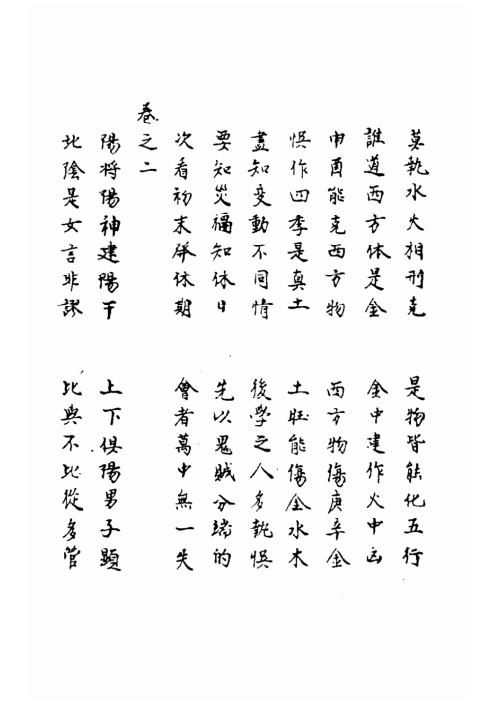 莫執水火相刑克　是物皆能化五行
誰道西方体是金　金中建作火中凶
申酉能克西方物　西方物傷庚辛金
悞作四季是真土　土旺能傷金水木
盡知変動不同情　後學之人多執悞
要知災福知休日　先以鬼賊分端的
次看初末併休期　會者萬中無一失
卷之二
陽将陽神建陽干　上下俱陽男子顕
北陰是女言非謬　比與不比從多管